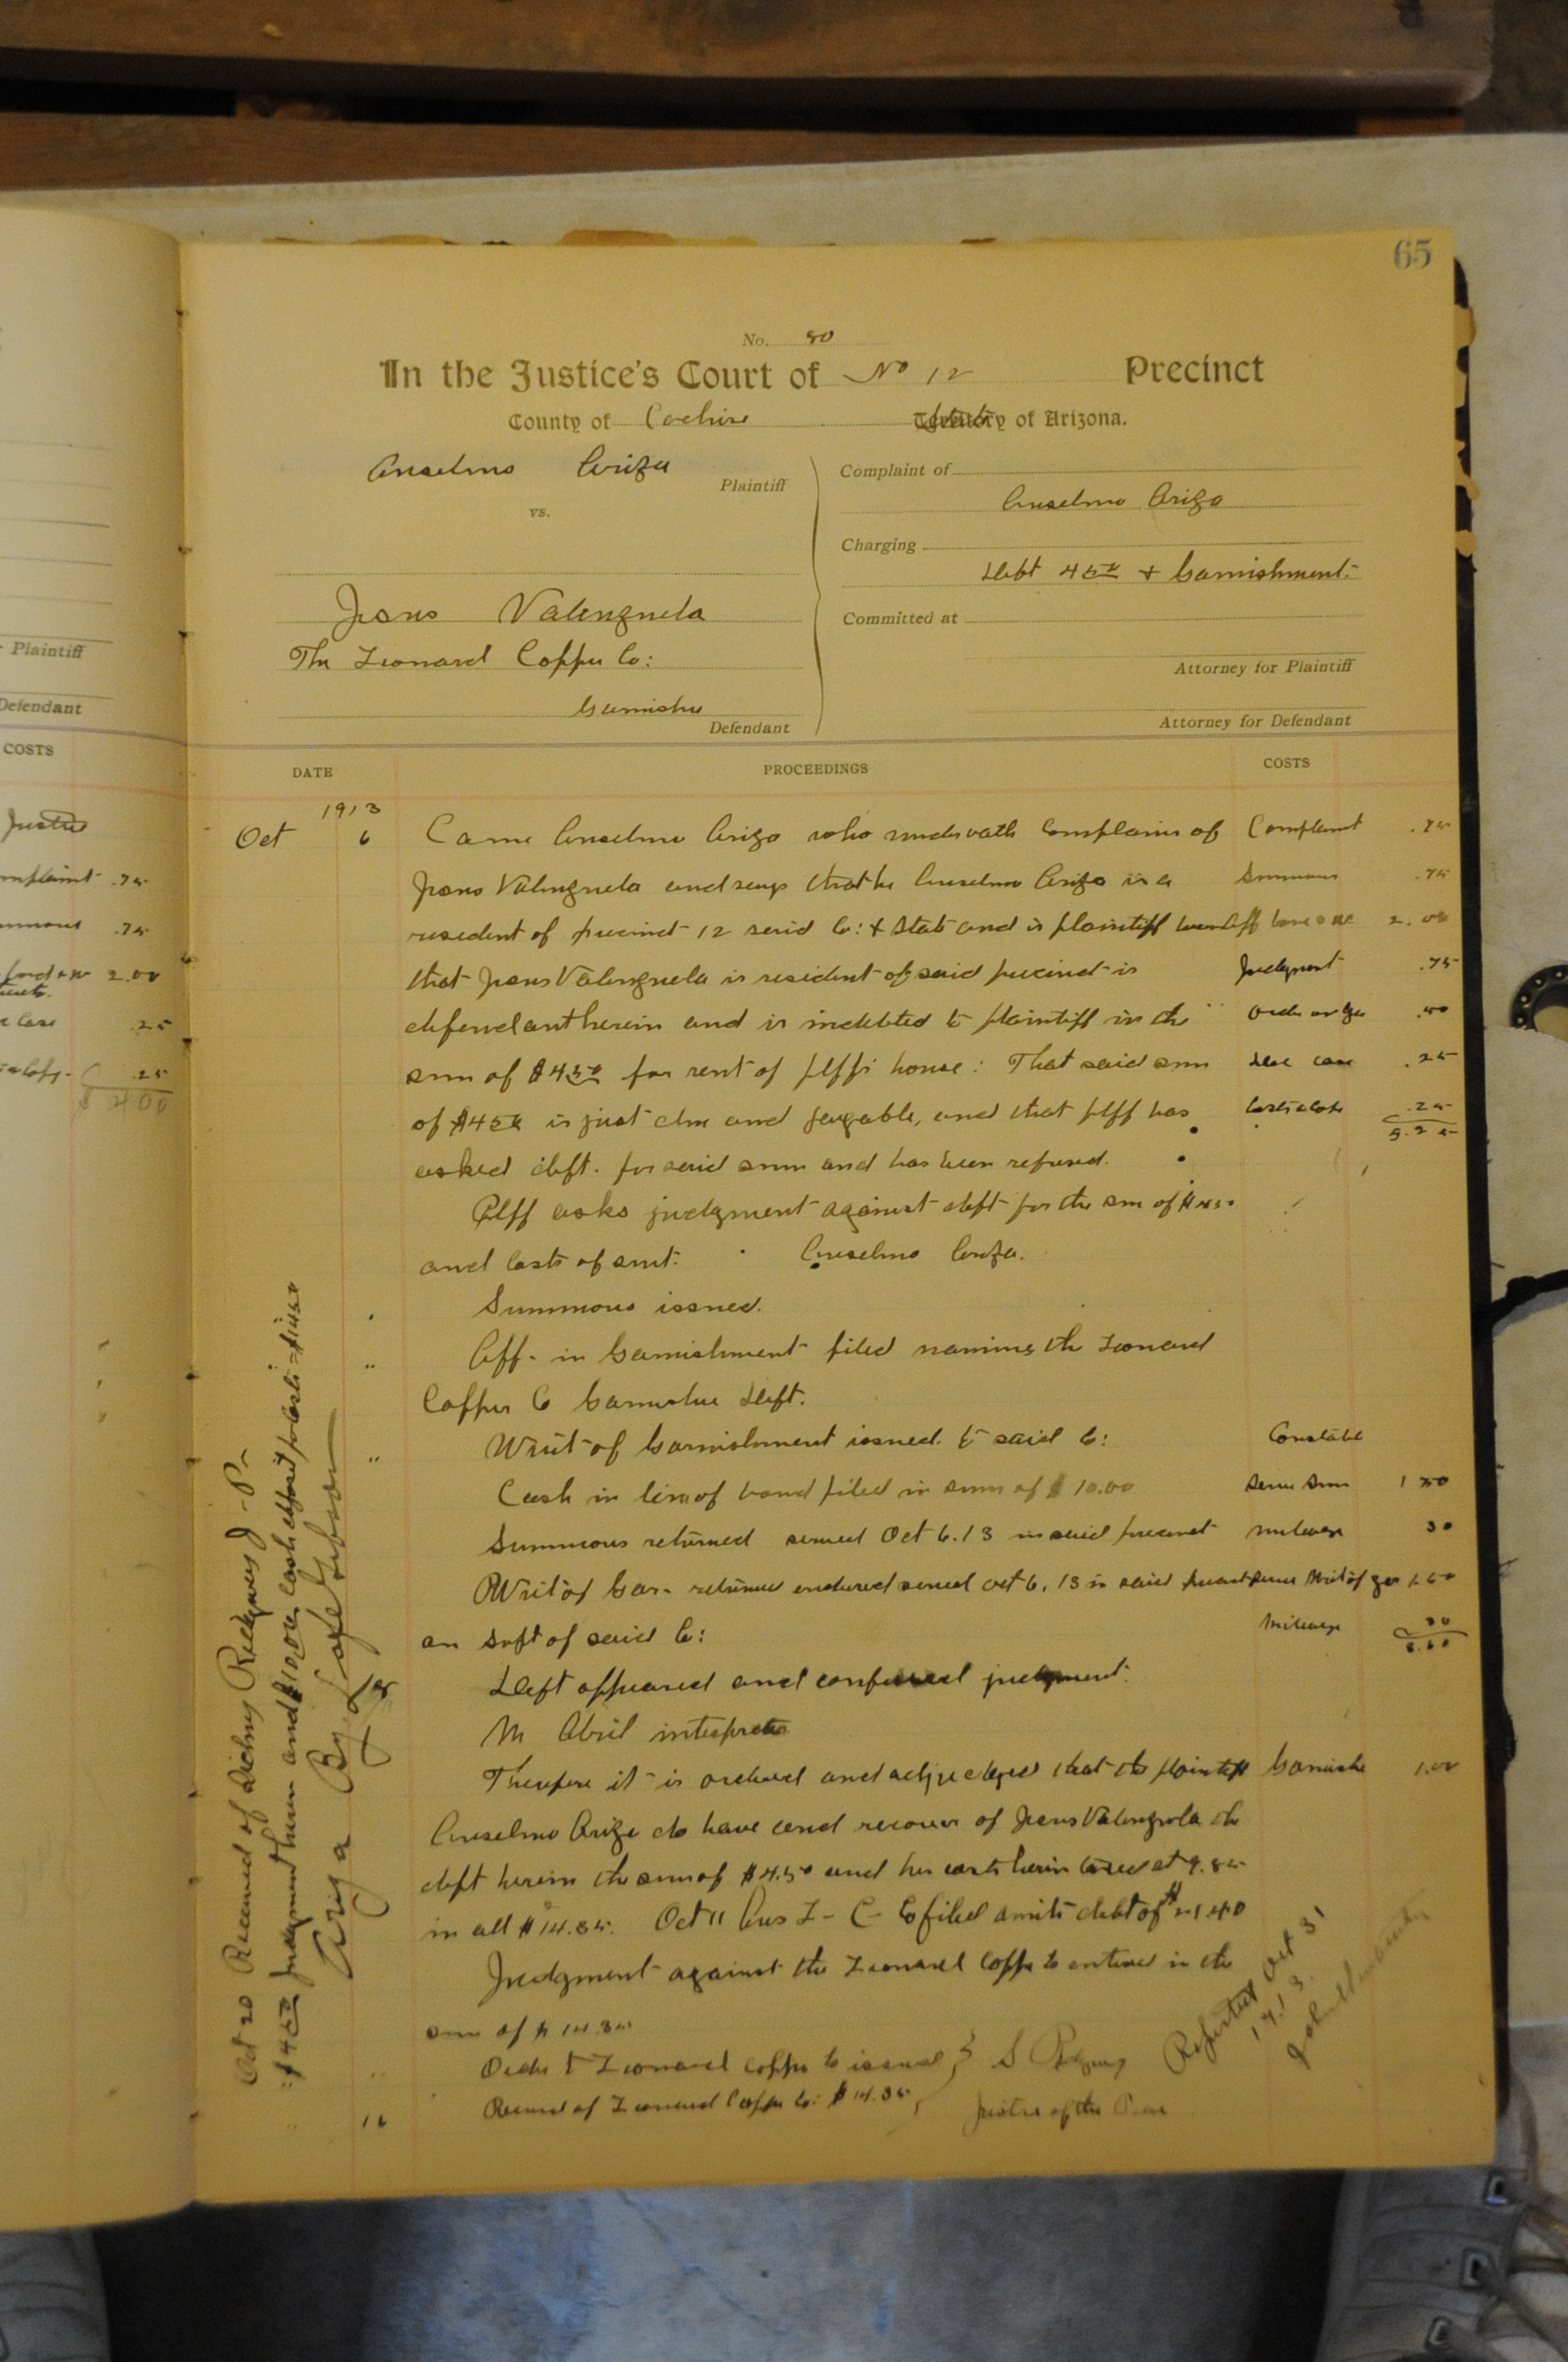 Plaintiff
Defendant
COSTS
Justice
Complaint .75
Summons .75
2.00
Case .25
.25
$ 4.00
65
No. 80
In the Justice's Court of No 12 Precinct
County of Cochise State of Arizona.
Anselmo Ariza Plaintiff
vs.
Jesus Valenzuela
The Leonard Copper Co:
Garnishee
Defendant
Complaint of
Anselmo Ariza
Charging
Debt 4 50 + Garnishment.
Committed at
Attorney for Plaintiff
Attorney for Defendant
DATE PROCEEDINGS COSTS
1913
Oct 6 Came Anselmo Ariza who under oath complains of Complaint .75
Jesus Valenzuela and says that he Anselmo Ariza is a Summons .75
resident of precinct 12 said Co: + State and is plaintiff 2.00
that Jesus Valenzuela is resident of said precinct is Judgment .75
defendant herein and is indebted to plaintiff in the Order on Gar .50
sum of $4 50 for rent of plffs house: That said sum case .25
of $4 50 is just due and payable, and that plff has .25
5.25
asked deft. for said sum and has been refused.
Plff asks judgment against deft for the sum of $4 50
and costs of suit. Anselmo Ariza.
Summons issued.
" Aff. in Garnishment filed naming the Leonard
Copper Co Garnishee Deft.
" Writ of Garnishment issued to said Co: Constable
Cash in lieu of bond filed in sum of $10.00 Serve Sum 1 50
Summons returned served Oct 6.13 in said precinct mileage 30
Writ of Gar. returned endorsed served Oct 6, 13 in said precinct Serve Writ of gar 1.50
on Supt of said Co: Mileage 30
3.60
Deft appeared and confessed judgment.
M Abril interpreter
Therefore it is ordered and adjudged that the plaintiff Garnishee 1.00
Anselmo Ariza do have and recover of Jesus Valenzuela the
deft herein the sum of $4.50 and his costs herein taxed at 9.85
in all $14.35. Oct 11 Ans L - C - Co filed admits debt of $21.40
Judgment against the Leonard Copper Co entered in the
sum of $14.35
" Order to Leonard Copper Co issued } S
16 Received of Leonard Copper Co: $14.35, Justice of the Peace
Reported Oct 31
1913.
Oct 20 Received of Sidney Ridgway J.P.
$4 50 judgment herein and $10.00 cash deposit for costs = $14.50
Ariza By